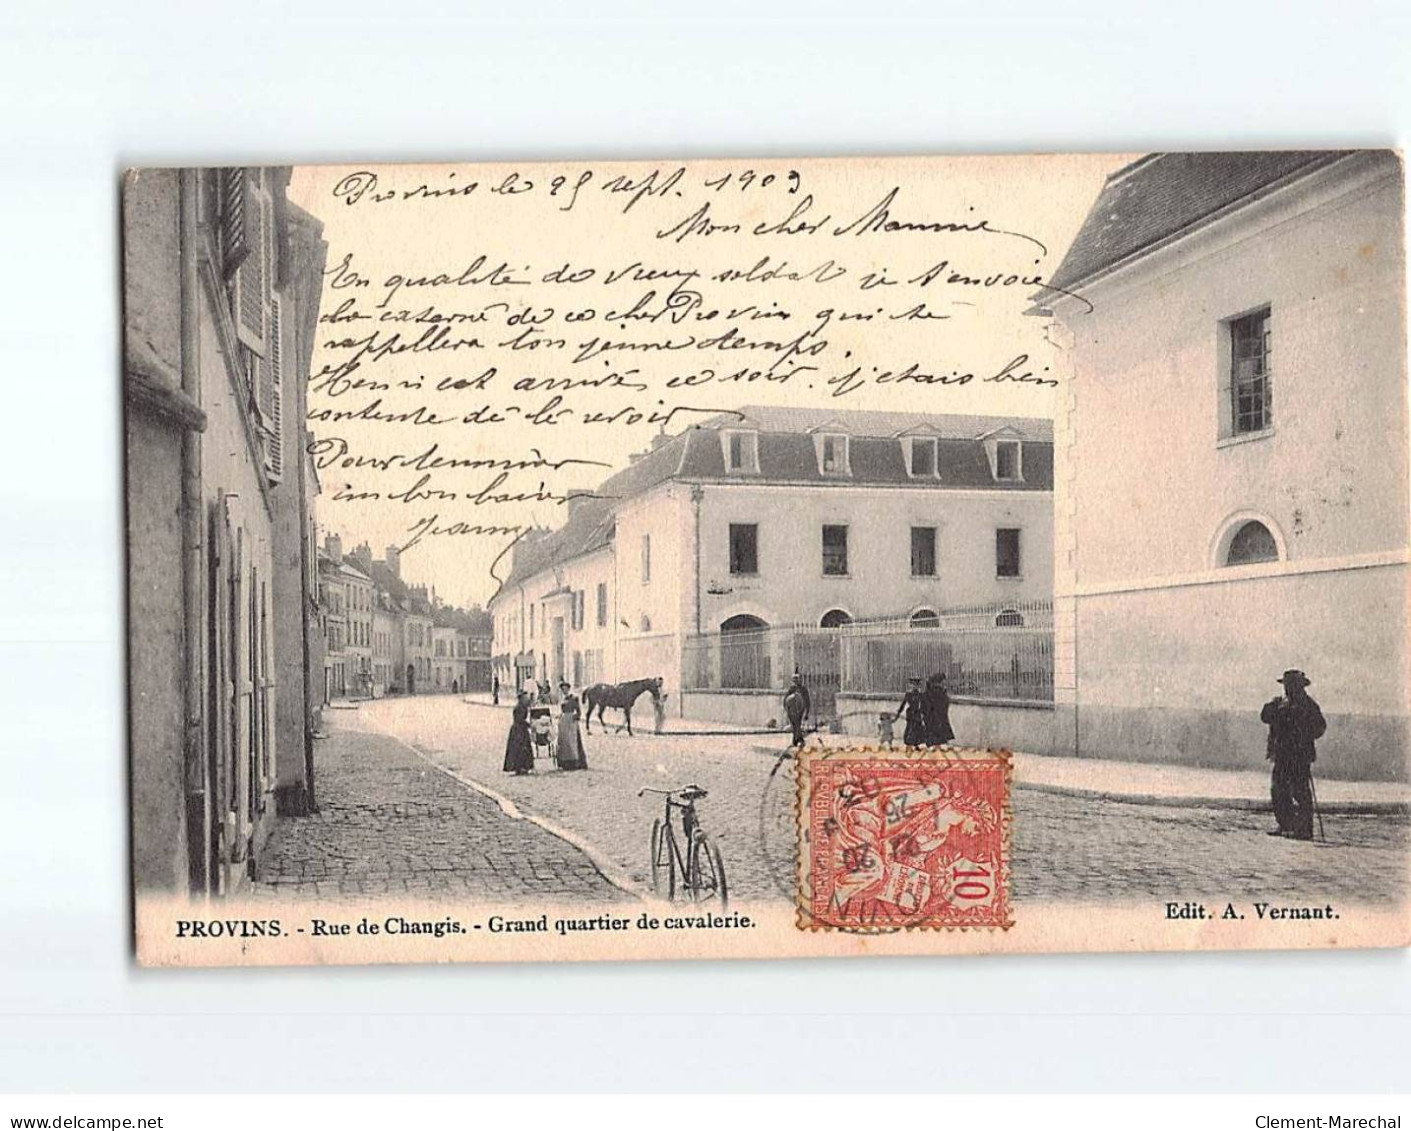 Provins le 25 sept. 1903
Mon cher Maurice
En qualité de vieux soldat je t'envoie
la caserne de ce cher Provins qui te
rappellera ton jeune temps.
Henri est arrivé ce soir. j'etais bien
contente de le revoir
Pour terminer
un bon baiser
Jeanne
10
PROVINS. - Rue de Changis. - Grand quartier de cavalerie.
Edit. A. Vernant.
www.delcampe.net
Clement-Marechal